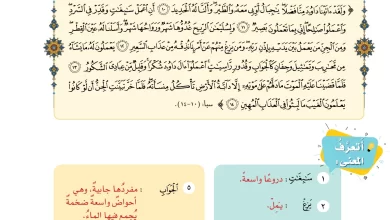 ﴿وَلَقَدْ ءَاتَيْنَا دَاوُۥدَ مِنَّا فَضْلًا يَٰجِبَالُ أَوِّبِى مَعَهُۥ وَٱلطَّيْرَ وَأَلَنَّا لَهُ ٱلْحَدِيدَ ۝١٠ أَنِ ٱعْمَلْ سَٰبِغَٰتٍ وَقَدِّرْ فِى ٱلسَّرْدِ
وَٱعْمَلُوا۟ صَٰلِحًا إِنِّى بِمَا تَعْمَلُونَ بَصِيرٌ ۝١١ وَلِسُلَيْمَٰنَ ٱلرِّيحَ غُدُوُّهَا شَهْرٌ وَرَوَاحُهَا شَهْرٌ وَأَسَلْنَا لَهُۥ عَيْنَ ٱلْقِطْرِ
وَمِنَ ٱلْجِنِّ مَن يَعْمَلُ بَيْنَ يَدَيْهِ بِإِذْنِ رَبِّهِۦ وَمَن يَزِغْ مِنْهُمْ عَنْ أَمْرِنَا نُذِقْهُ مِنْ عَذَابِ ٱلسَّعِيرِ ۝١٢ يَعْمَلُونَ لَهُۥ مَا يَشَآءُ
مِن مَّحَٰرِيبَ وَتَمَٰثِيلَ وَجِفَانٍ كَٱلْجَوَابِ وَقُدُورٍ رَّاسِيَٰتٍ ٱعْمَلُوٓا۟ ءَالَ دَاوُۥدَ شُكْرًا وَقَلِيلٌ مِّنْ عِبَادِىَ ٱلشَّكُورُ ۝١٣
فَلَمَّا قَضَيْنَا عَلَيْهِ ٱلْمَوْتَ مَا دَلَّهُمْ عَلَىٰ مَوْتِهِۦٓ إِلَّا دَآبَّةُ ٱلْأَرْضِ تَأْكُلُ مِنسَأَتَهُۥ فَلَمَّا خَرَّ تَبَيَّنَتِ ٱلْجِنُّ أَن لَّوْ كَانُوا۟
يَعْلَمُونَ ٱلْغَيْبَ مَا لَبِثُوا۟ فِى ٱلْعَذَابِ ٱلْمُهِينِ ۝١٤﴾ (سبأ: ١٠-١٤).
أتعرَّفُ
المعنى:
١ سَٰبِغَٰتٍ : دروعًا واسعةً.
٢ يَزِغْ : يَمِلْ.
٥ ٱلْجَوَابِ : مفردُها جابيةٌ، وهي
أحواضٌ واسعةٌ ضخمةٌ
يُجمع فيها الماءُ.